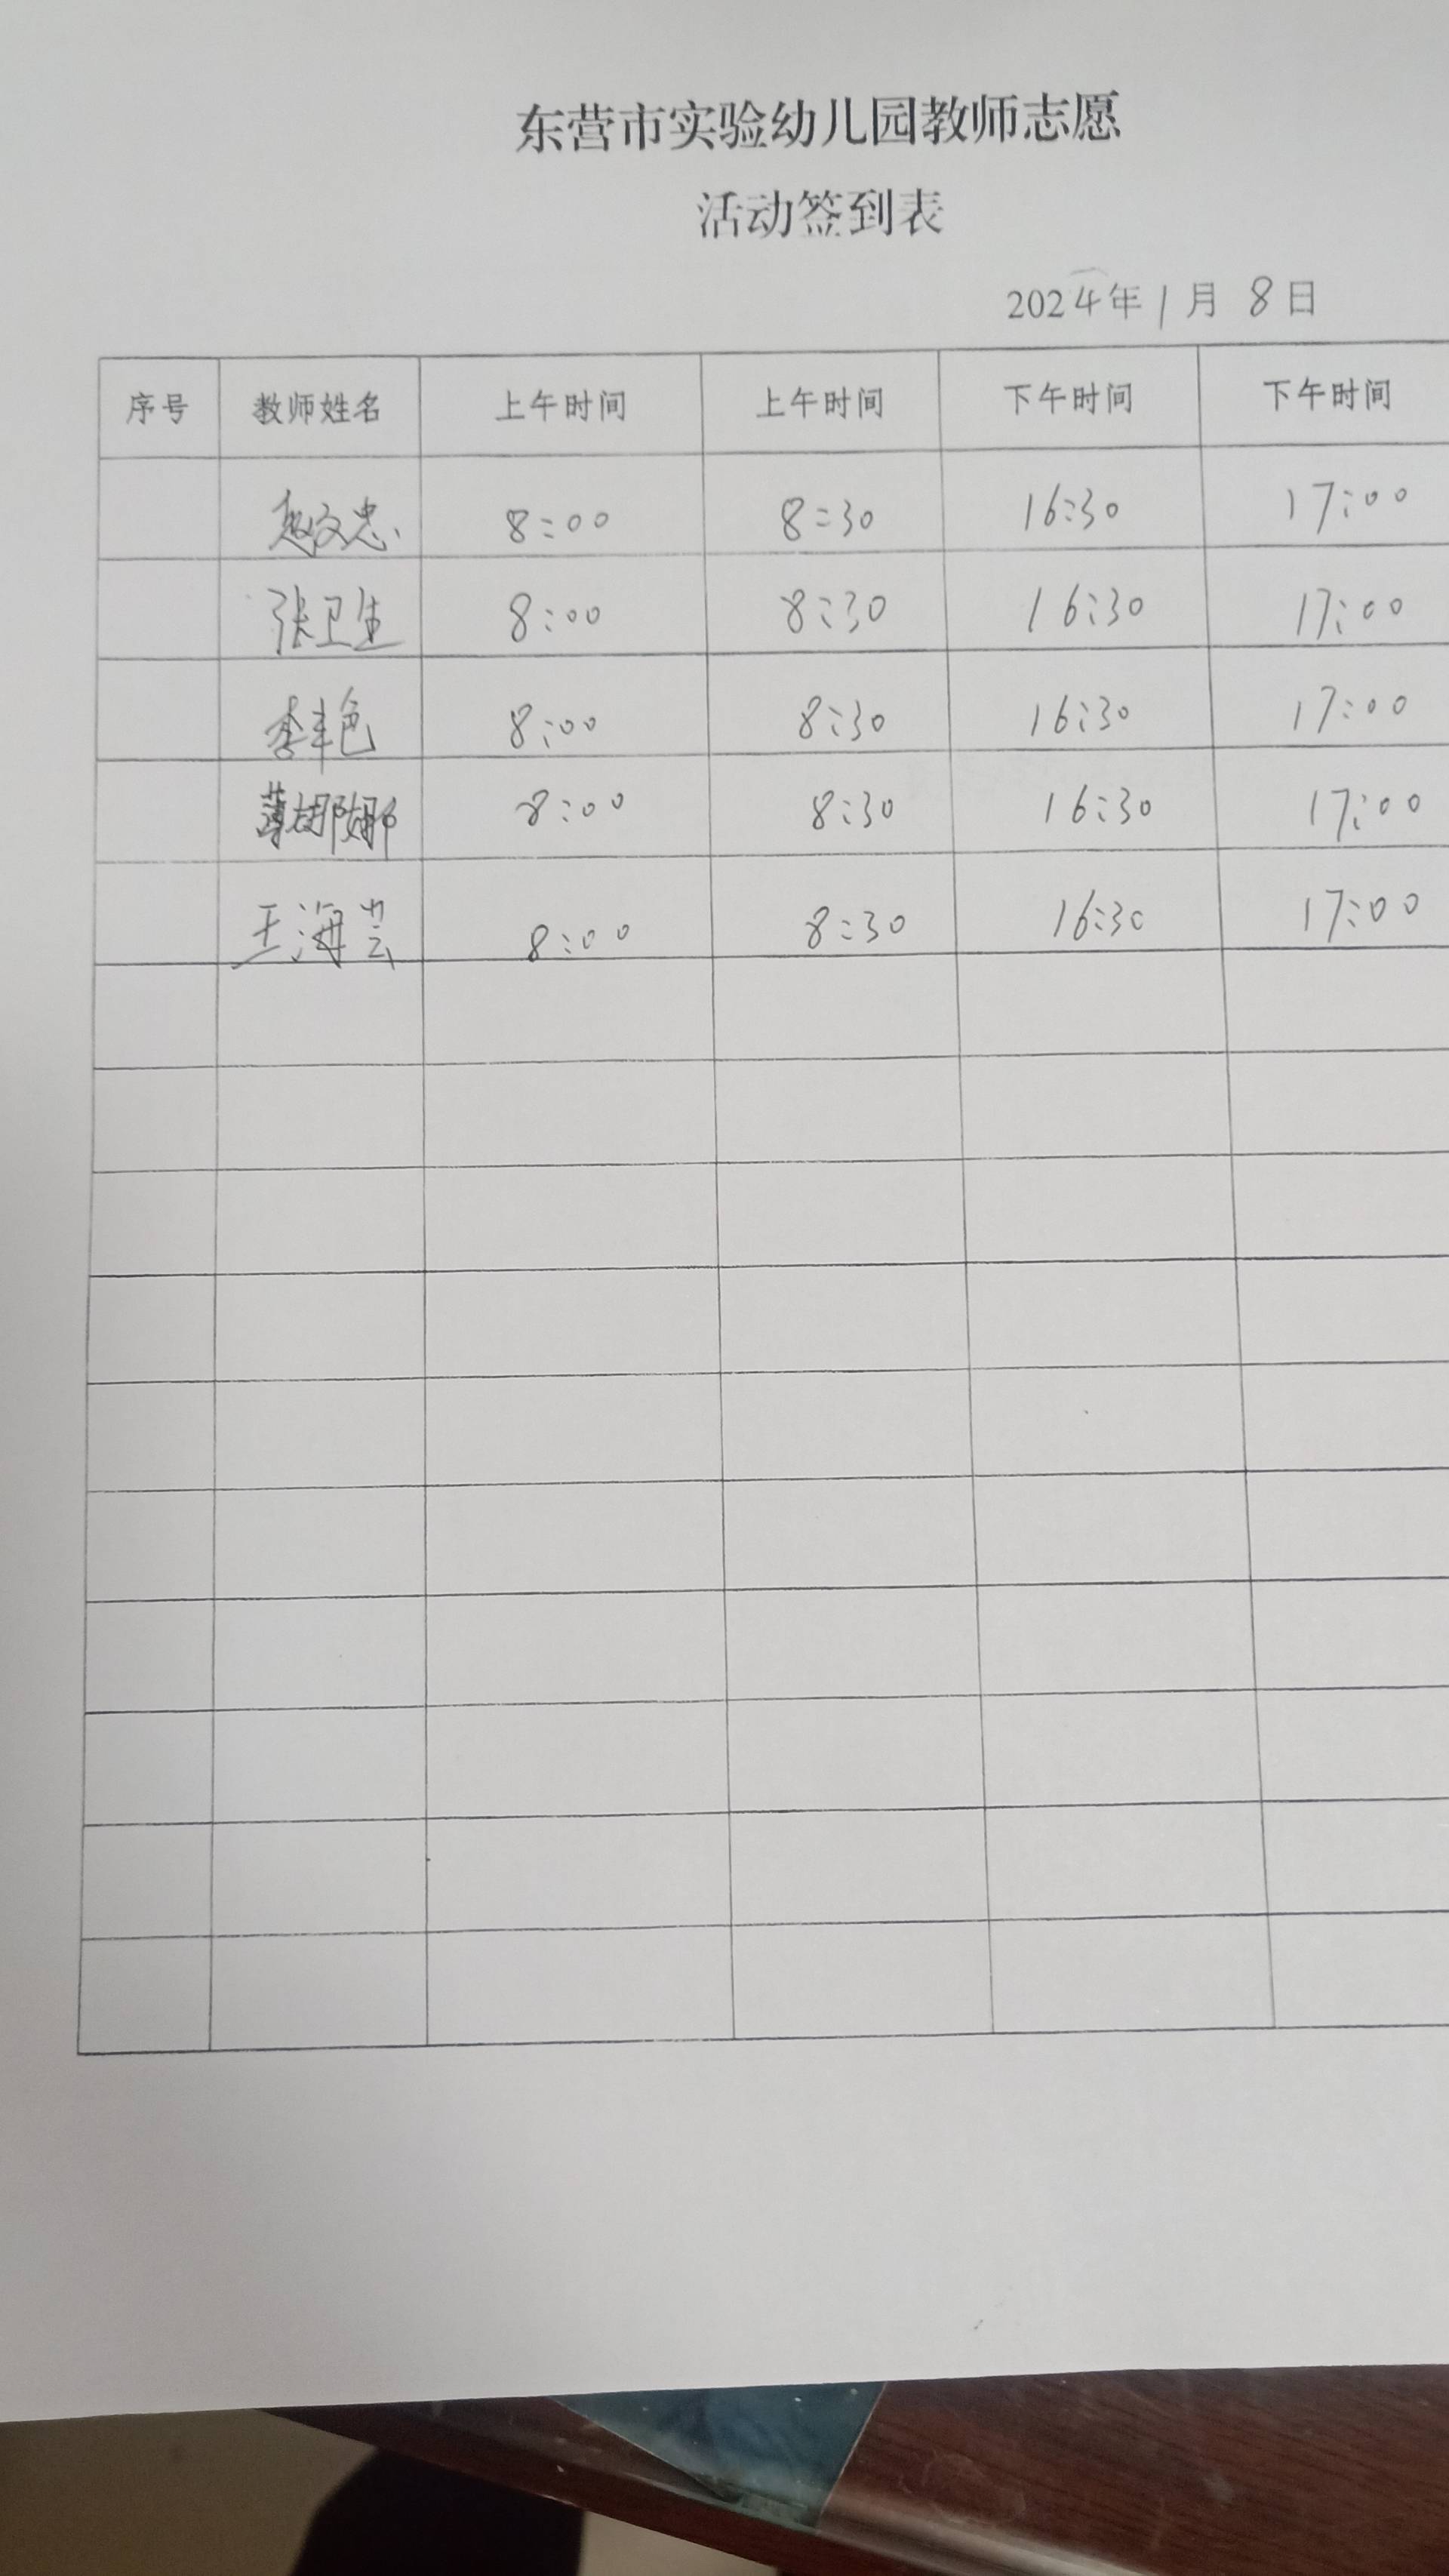 东营市实验幼儿园教师志愿
活动签到表
2024年1月8日
序号 教师姓名 上午时间 上午时间 下午时间 下午时间
赵文忠 8:00 8:30 16:30 17:00
张卫生 8:00 8:30 16:30 17:00
李丰色 8:00 8:30 16:30 17:00
薄娜娜 8:00 8:30 16:30 17:00
王海芸 8:00 8:30 16:30 17:00